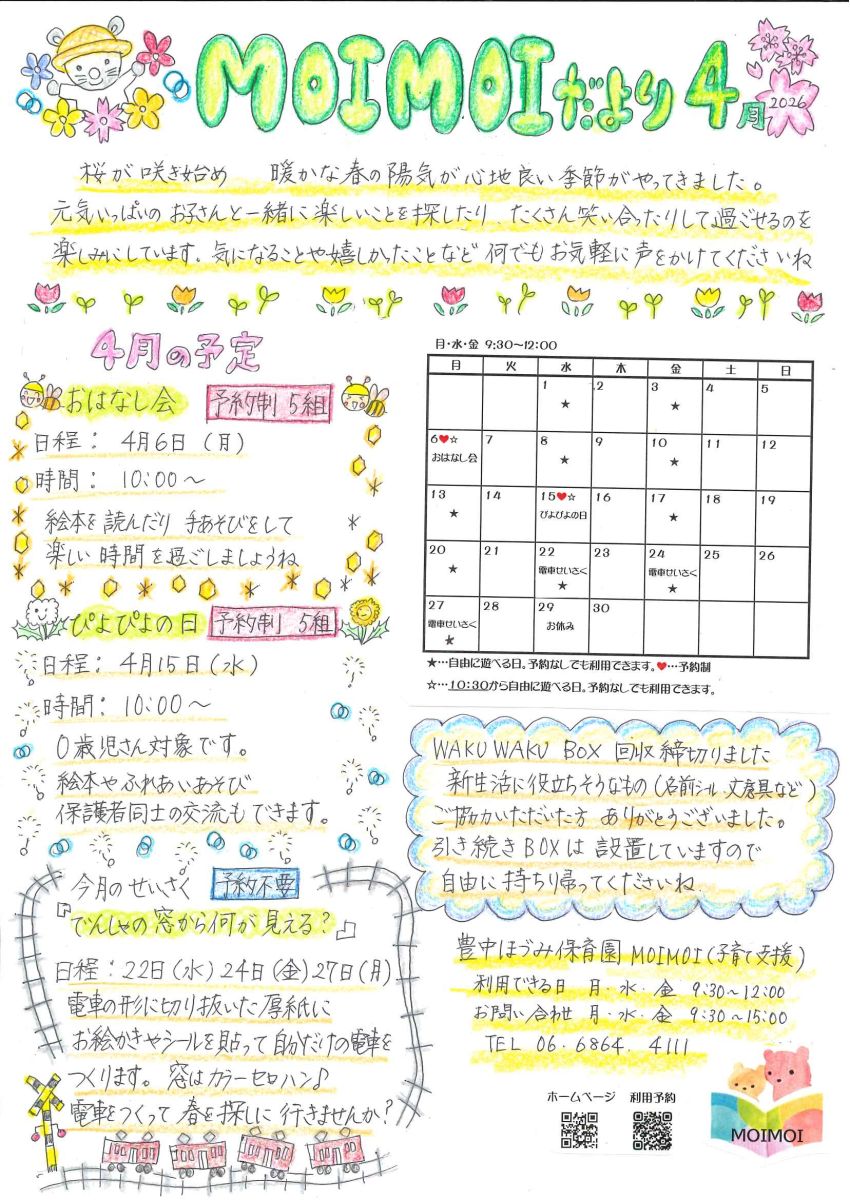 MOIMOIだより 4月 2026
桜が咲き始め 暖かな春の陽気が心地良い季節がやってきました。
元気いっぱいのお子さんと一緒に楽しいことを探したり、たくさん笑い合ったりして過ごせるのを
楽しみにしています。気になることや嬉しかったことなど何でもお気軽に声をかけてくださいね
4月の予定
おはなし会 予約制 5組
日程： 4月6日（月）
時間： 10:00～
絵本を読んだり 手あそびをして
楽しい時間を過ごしましょうね
ぴよぴよの日 予約制 5組
日程：4月15日（水）
時間：10:00～
0歳児さん対象です。
絵本やふれあいあそび
保護者同士の交流もできます。
今月のせいさく 予約不要
『でんしゃの窓から何が見える？』
日程：22日（水）24日（金）27日（月）
電車の形に切り抜いた厚紙に
お絵かきやシールを貼って自分だけの電車を
つくります。窓はカラーセロハン♪
電車をつくって春を探しに行きませんか？
月・水・金 9:30～12:00
月 火 水 木 金 土 日
1 2 3 4 5
★ ★
6♥☆ 7 8 9 10 11 12
おはなし会 ★ ★
13 14 15♥☆ 16 17 18 19
★ ぴよぴよの日 ★
20 21 22 23 24 25 26
★ 電車せいさく 電車せいさく
★ ★
27 28 29 30
電車せいさく お休み
★
★…自由に遊べる日。予約なしでも利用できます。♥…予約制
☆…10:30から自由に遊べる日。予約なしでも利用できます。
WAKU WAKU BOX 回収締切りました
新生活に役立ちそうなもの（名前シール・文房具など）
ご協力いただいた方 ありがとうございました。
引き続きBOXは設置していますので
自由に持ちり帰ってくださいね
豊中ほづみ保育園 MOIMOI（子育て支援）
利用できる日 月・水・金 9:30～12:00
お問い合わせ 月・水・金 9:30～15:00
TEL 06・6864・4111
ホームページ 利用予約
MOIMOI